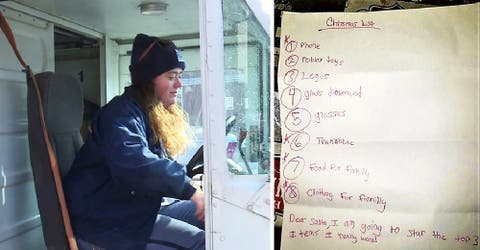 Christmas List
1 Phone
2 power toys
3 Legos
4 glass diamond
5 glasses
6 Trampoline
7 Food for family
8 Clothing for family
Dear Santa, I am going to star the top 3
Items I really want